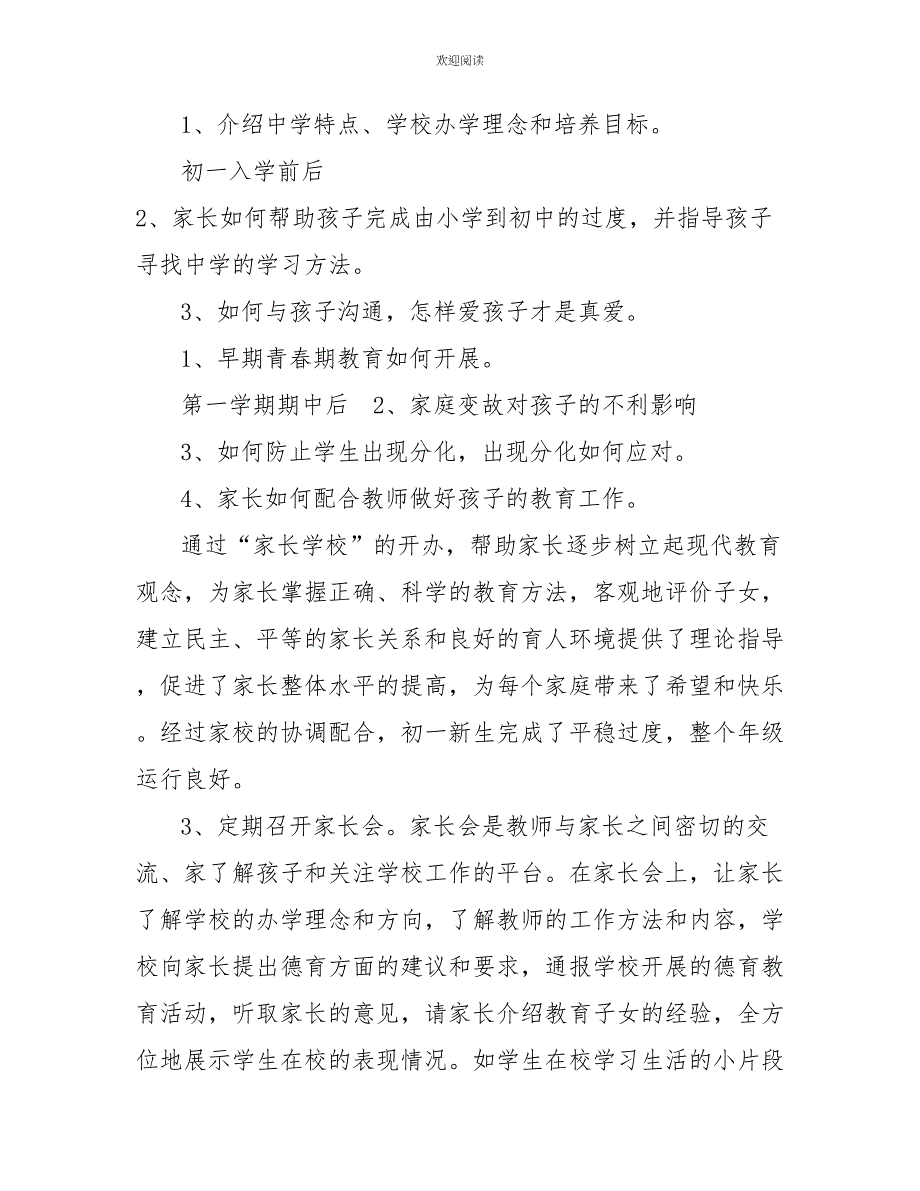 欢迎阅读
1、介绍中学特点、学校办学理念和培养目标。
初一入学前后
2、家长如何帮助孩子完成由小学到初中的过度，并指导孩子
寻找中学的学习方法。
3、如何与孩子沟通，怎样爱孩子才是真爱。
1、早期青春期教育如何开展。
第一学期期中后　2、家庭变故对孩子的不利影响
3、如何防止学生出现分化，出现分化如何应对。
4、家长如何配合教师做好孩子的教育工作。
通过“家长学校”的开办，帮助家长逐步树立起现代教育
观念，为家长掌握正确、科学的教育方法，客观地评价子女，
建立民主、平等的家长关系和良好的育人环境提供了理论指导
，促进了家长整体水平的提高，为每个家庭带来了希望和快乐
。经过家校的协调配合，初一新生完成了平稳过度，整个年级
运行良好。
3、定期召开家长会。家长会是教师与家长之间密切的交
流、家了解孩子和关注学校工作的平台。在家长会上，让家长
了解学校的办学理念和方向，了解教师的工作方法和内容，学
校向家长提出德育方面的建议和要求，通报学校开展的德育教
育活动，听取家长的意见，请家长介绍教育子女的经验，全方
位地展示学生在校的表现情况。如学生在校学习生活的小片段